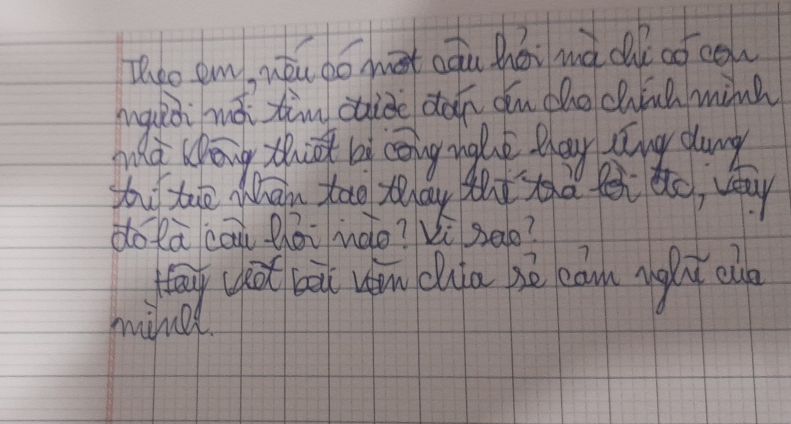 Theo em, nếu có một câu hỏi mà chỉ có con
người mới tìm được đáp án cho chính mình
mà không thiết bị công nghệ hay ứng dụng
trí tuệ nhân tạo thay thế trả lời đc, vậy
đó là câu hỏi nào? Vì sao?
Hãy viết bài văn chia sẻ cảm nghĩ của
mình.